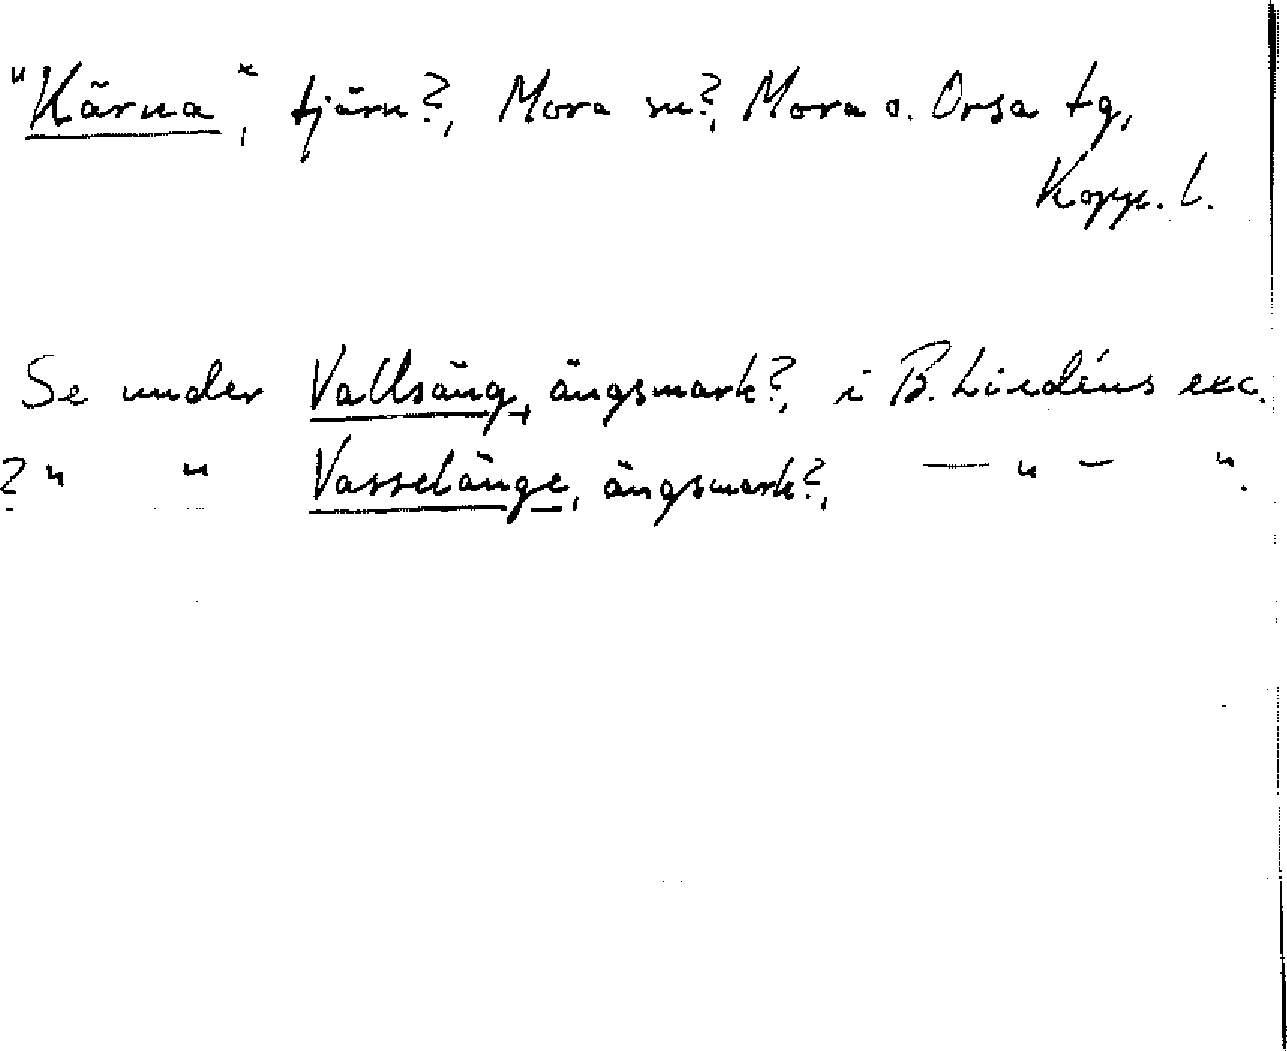 "Kärna", tjärn?, Mora sn?, Mora o. Orsa tg,
Kopp. l.
Se under Vallsäng, ängsmark?, i B. Lindéns exc.
? " " Vasselänge, ängsmark?, — " — " .